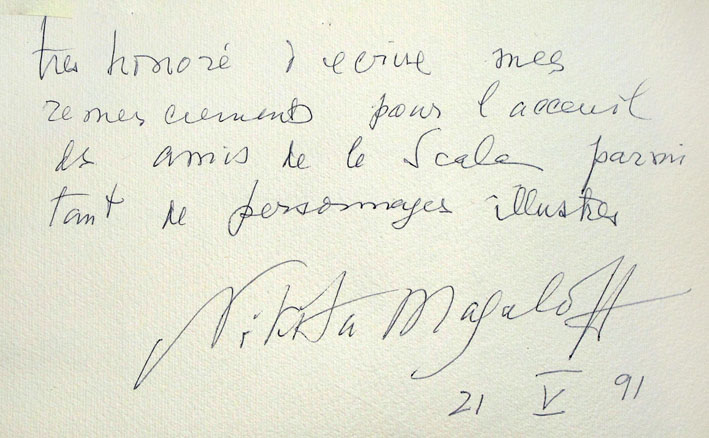 tres honoré d'ecrire mes
remerciements pour l'acceuil
des amis de la Scala parmi
tant de personnages illustres
Nikita Magaloff
21 V 91